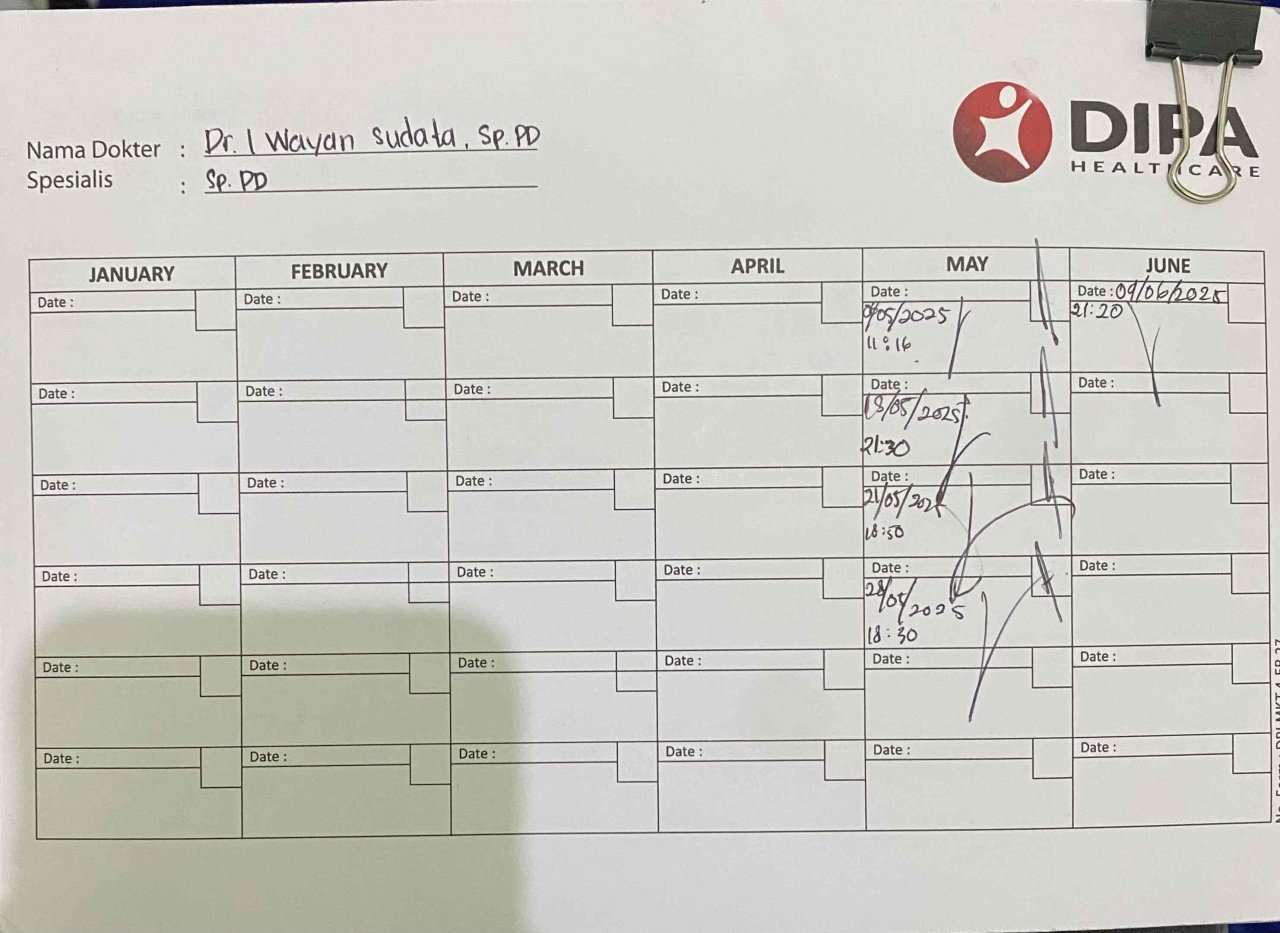 DIPA
HEALTHCARE
Nama Dokter : Dr. I Wayan Sudata, Sp.PD
Spesialis : Sp. PD
JANUARY FEBRUARY MARCH APRIL MAY JUNE
Date : Date : Date : Date : Date : Date : 09/06/2025
/05/2025 21:20
11:16
Date : Date : Date : Date : Date : Date :
/05/2025
21:30
Date : Date : Date : Date : Date : Date :
21/05/202
18:50
Date : Date : Date : Date : Date : Date :
28/05/2025
18:30
Date : Date : Date : Date : Date : Date :
Date : Date : Date : Date : Date : Date :